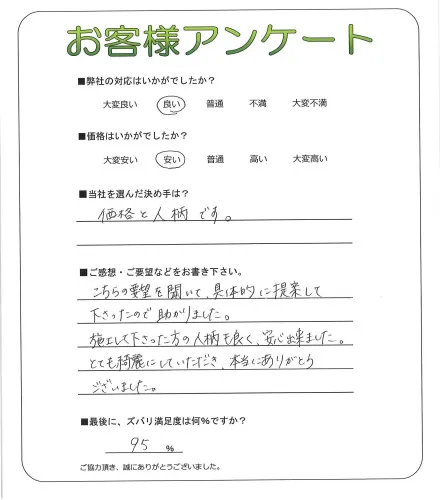 お客様アンケート
■弊社の対応はいかがでしたか?
大変良い 良い 普通 不満 大変不満
■価格はいかがでしたか?
大変安い 安い 普通 高い 大変高い
■当社を選んだ決め手は?
価格と人柄です。
■ご感想・ご要望などをお書き下さい。
こちらの要望を聞いて、具体的に提案して
下さったので助かりました。
施工して下さった方の人柄も良く、安心出来ました。
とても綺麗にしていただき、本当にありがとう
ございました。
■最後に、ズバリ満足度は何%ですか?
95 %
ご協力頂き、誠にありがとうございました。